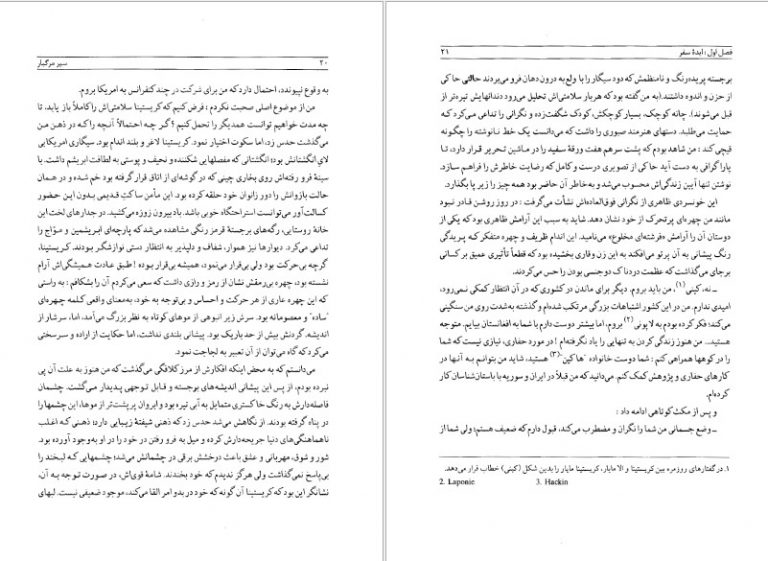 ۲۰ سیر مرگبار
به وقوع نپیوندد، احتمال دارد که من برای شرکت در چند کنفرانس به امریکا بروم.
من از موضوع اصلی صحبت نکردم: فرض کنیم که کریستینا سلامتی‌اش را کاملاً باز یابد، تا
چه مدت خواهیم توانست همدیگر را تحمل کنیم؟ گر چه احتمالاً آنچه را که در ذهن من
می‌گذشت حدس زد، اما سکوت اختیار نمود. کریستینا لاغر و بلند اندام بود. سیگاری امریکایی
لای انگشتانش بود؛ انگشتانی که مفصلهایی شکننده و نحیف و پوستی به لطافت ابریشم داشت. با
سینهٔ فرو رفته‌اش روی بخاری چینی که در گوشه‌ای از اتاق قرار گرفته بود خم شده و در همان
حالت بازوانش را دور زانوان خود حلقه کرده بود. این مأمن ساکتِ قدیمی بدون این حضور
کسالت‌آور می‌توانست استراحتگاه خوبی باشد. باد بیرون زوزه می‌کشید. در جدارهای لخت این
خانهٔ روستایی، رگه‌های برجستهٔ قرمز رنگی مشاهده می‌شد که پارچه‌ای ابریشمین و موّاج را
تداعی می‌کرد. دیوارها نیز هموار، شفاف و دلپذیر به انتظار دستی نوازشگر بودند. کریستینا،
گرچه بی‌حرکت بود ولی بی‌قرار می‌نمود، همیشه بی‌قرار بوده! طبق عادت همیشگی‌اش آرام
نشسته بود، چهره بی‌رمقش نشان از رمز و رازی داشت که سعی می‌کردم آن را بشکافم: به راستی
که این چهره عاری از هر حرکت و احساس و بی‌توجه به خود، به‌معنای واقعی کلمه چهره‌ای
"ساده" و معصومانه بود. سرش زیر انبوهی از موهای کوتاه به نظر بزرگ می‌آمد، اما، سرشار از
اندیشه. گردنش بیش از حد باریک بود. پیشانی بلندی نداشت، اما حکایت از اراده و سرسختی
می‌کرد که گاه می‌توان از آن تعبیر به لجاجت نمود.
می‌دانستم که به محض اینکه افکارش از مرز کلافگی می‌گذشت که من هنوز به علت آن پی
نبرده بودم، از پس این پیشانی اندیشه‌های برجسته و قابل توجهی پدیدار می‌گشت. چشمان
فاصله‌دارش به رنگ خاکستری متمایل به آبی تیره بود و ابروان پرپشت‌تر از موها، این چشمها را
در پناه گرفته بودند. از نگاهش می‌شد حدس زد که ذهنی شیفتهٔ زیبایی دارد؛ ذهنی که اغلب
ناهماهنگی‌های دنیا جریحه‌دارش کرده و میل به فرو رفتن در خود را در او به‌وجود آورده بود.
شور و شوق، مهربانی و عشق باعث درخشش برقی در چشمانش می‌شد؛ چشمهایی که لبخند را
بی‌پاسخ نمی‌گذاشت ولی هرگز ندیدم که خود بخندند. شامهٔ قوی‌اش، در صورت توجه به آن،
نشانگر این بود که کریستینا آن گونه که خود در بدو امر القا می‌کند، موجود ضعیفی نیست. لبهای
فصل اول: ایدهٔ سفر ۲۱
برجسته پریده‌رنگ و نامنظمش که دود سیگار را با ولع به درون دهان فرو می‌بردند حالتی حاکی
از حزن و اندوه داشتند. (به من گفته بود که هربار سلامتی‌اش تحلیل می‌رود دندانهایش تیره‌تر از
قبل می‌شوند). چانه کوچک، بسیار کوچکش، کودک شگفت‌زده و نگرانی را تداعی می‌کرد که
حمایت می‌طلبد. دستهای هنرمند صبوری را داشت که می‌دانست یک خط نانوشته را چگونه
قیچی کند: من شاهد بودم که پشت سرهم هفت ورقهٔ سفید را در ماشین تحریر قرار دارد، تا
پاراگرافی به دست آید حاکی از تصویری درست و کاملی که رضایت خاطرش را فراهم سازد.
نوشتن تنها آیین زندگی‌اش محسوب می‌شد و به‌خاطر آن حاضر بود همه چیز را زیر پا بگذارد.
این خونسردی ظاهری از نگرانی فوق‌العاده‌اش نشأت می‌گرفت: در روز روشن قادر نبود
مانند من چهره‌ای پرتحرک از خود نشان دهد. شاید به سبب این آرامش ظاهری بود که یکی از
دوستان آن را آرامش «فرشته‌ای مخلوع» می‌نامید. این اندام ظریف و چهره متفکر که پریدگی
رنگ پیشانی به آن پرتو می‌افکند به این زن وقاری بخشیده؛ بود که قطعاً تأثیری عمیق بر کسانی
برجای می‌گذاشت که عظمت دردناک دوجنسی بودن را حس می‌کردند.
ــ نه، کینی(۱)، من باید بروم. دیگر برای ماندن در کشوری که در آن انتظار کمکی نمی‌رود،
امیدی ندارم. من در این کشور اشتباهات بزرگی مرتکب شده‌ام و گذشته به‌شدت روی من سنگینی
می‌کند؛ فکر کرده بودم به لاپونی(۲) بروم، اما بیشتر دوست دارم با شما به افغانستان بیایم. متوجه
هستید... من هنوز زندگی کردن به تنهایی را یاد نگرفته‌ام! در مورد حفاری، نیازی نیست که شما
را در کوهها همراهی کنم: شما دوست خانواده "هاکین"(۳) هستید، شاید من بتوانم به آنها در
کارهای حفاری و پژوهش کمک کنم. می‌دانید که من قبلاً در ایران و سوریه با باستان‌شناسان کار
کرده‌ام.
و پس از مکث کوتاهی ادامه داد:
ــ وضع جسمانی من شما را نگران و مضطرب می‌کند، قبول دارم که ضعیف هستم؛ ولی شما از
۱. در گفتارهای روزمره بین کریستینا و الا مایار، کریستینا مایار را بدین شکل (کینی) خطاب قرار می‌دهد.
2. Laponie 3. Hackin